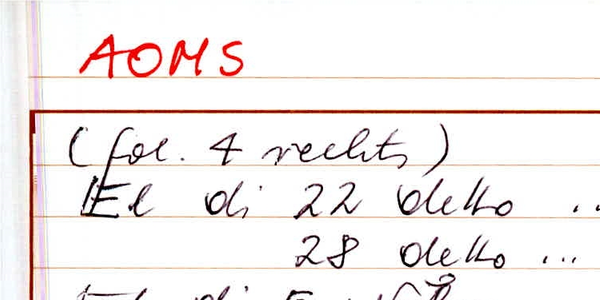 AOMS
(fol. 4 rechts)
El di 22 detto ...
28 detto ...
di